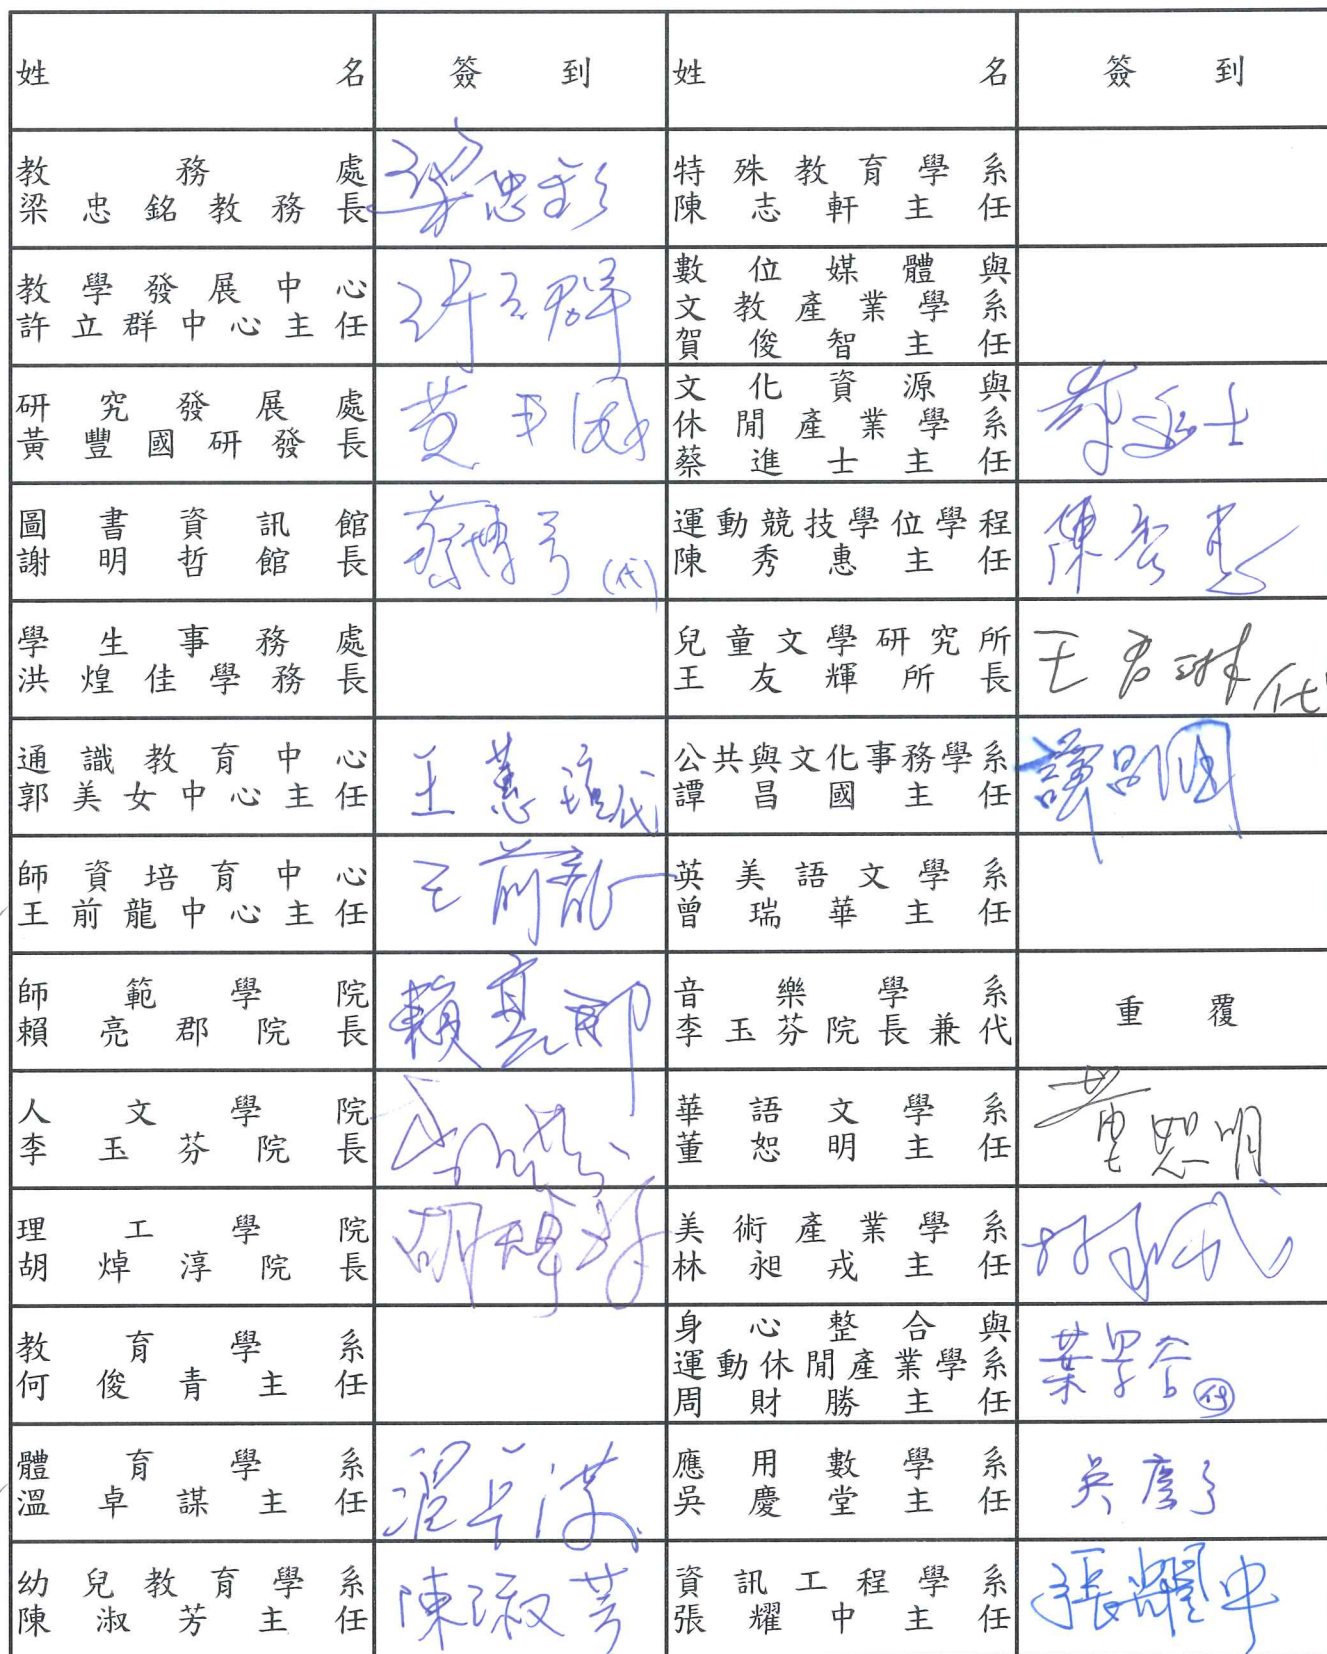 姓名 簽到 姓名 簽到
教務處
梁忠銘教務長
梁忠銘
特殊教育學系
陳志軒主任
教學發展中心
許立群中心主任
許立群
數位媒體與
文教產業學系
賀俊智主任
研究發展處
黃豐國研發長
黃丰國
文化資源與
休閒產業學系
蔡進士主任
蔡進士
圖書資訊館
謝明哲館長
(代)
運動競技學位學程
陳秀惠主任
陳秀惠
學生事務處
洪煌佳學務長
兒童文學研究所
王友輝所長
王君琳代
通識教育中心
郭美女中心主任
王慧 代
公共與文化事務學系
譚昌國主任
譚昌國
師資培育中心
王前龍中心主任
王前龍
英美語文學系
曾瑞華主任
師範學院
賴亮郡院長
賴亮郡
音樂學系
李玉芬院長兼代
重覆
人文學院
李玉芬院長
李玉芬
華語文學系
董恕明主任
董恕明
理工學院
胡焯淳院長
胡焯淳
美術產業學系
林昶戎主任
林昶戎
教育學系
何俊青主任
身心整合與
運動休閒產業學系
周財勝主任
葉 代
體育學系
溫卓謀主任
溫卓謀
應用數學系
吳慶堂主任
吳慶堂
幼兒教育學系
陳淑芳主任
陳淑芳
資訊工程學系
張耀中主任
張耀中